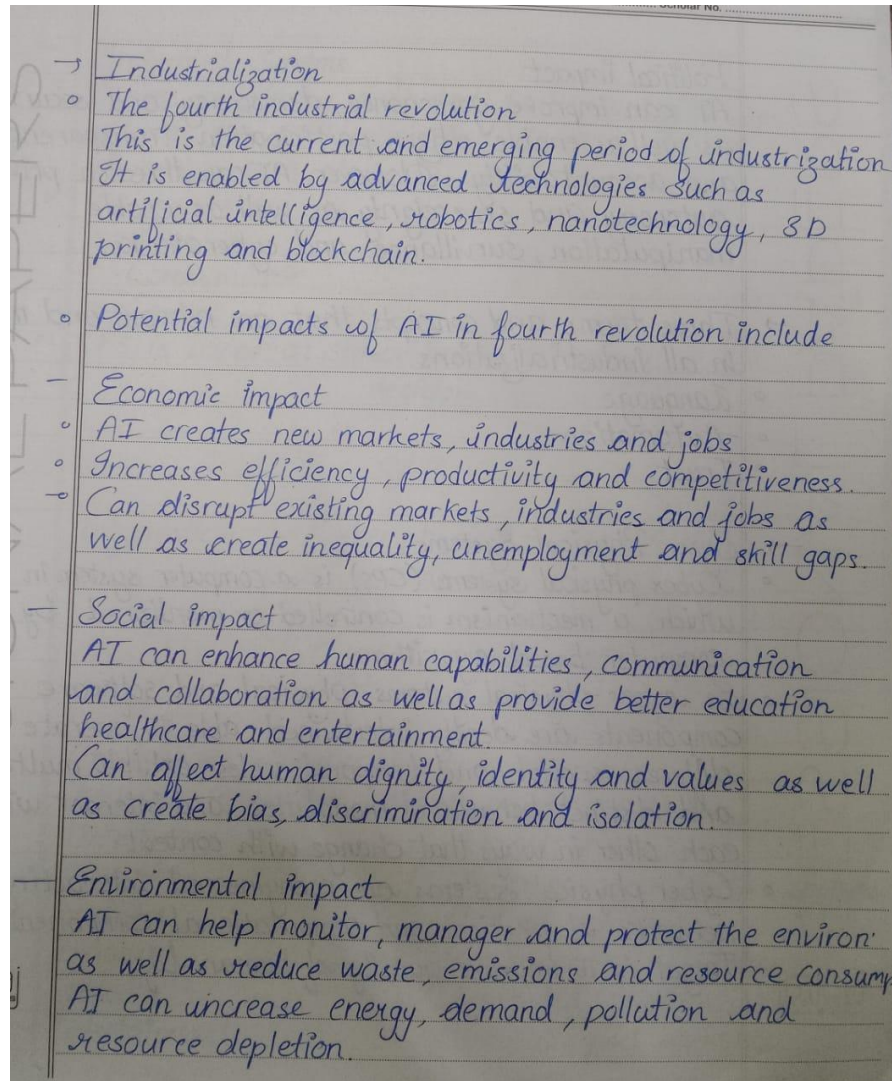 Scholar No. ....................
→ Industrialization
o The fourth industrial revolution
This is the current and emerging period of industrization
It is enabled by advanced technologies such as
artificial intelligence, robotics, nanotechnology, 3D
printing and blockchain.
o Potential impacts of AI in fourth revolution include
- Economic impact
o AI creates new markets, industries and jobs
o Increases efficiency, productivity and competitiveness.
o Can disrupt existing markets, industries and jobs as
well as create inequality, unemployment and skill gaps.
- Social impact
AI can enhance human capabilities, communication
and collaboration as well as provide better education
healthcare and entertainment.
Can affect human dignity, identity and values as well
as create bias, discrimination and isolation.
- Environmental impact
AI can help monitor, manager and protect the environ
as well as reduce waste, emissions and resource consump
AI can increase energy, demand, pollution and
resource depletion.